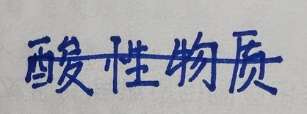 酸性物质